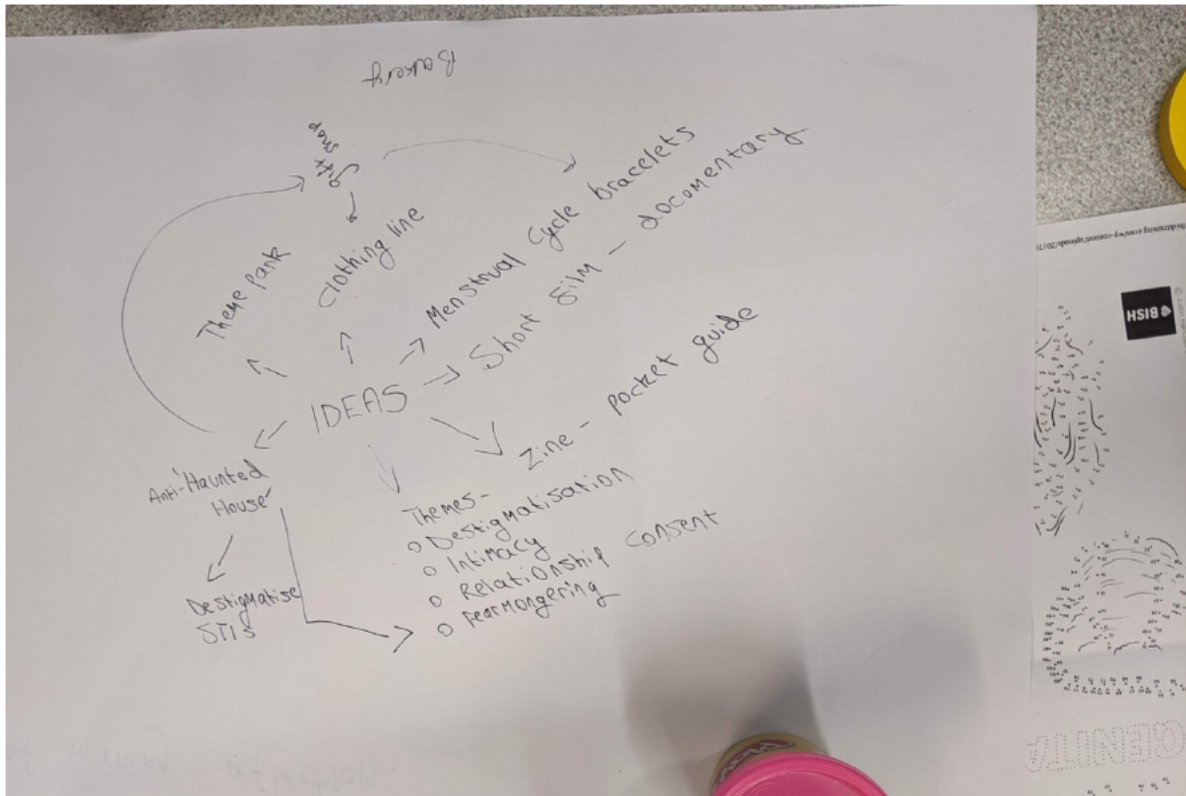 Bakery
gift shop
Theme park
Clothing line
Menstrual Cycle bracelets
Short film - documentary
IDEAS
Zine - pocket guide
Anti-'Haunted
House'
Destigmatise
STIs
Themes-
Destigmatisation
Intimacy
Relationship Consent
Fearmongering
BISH
GENITA